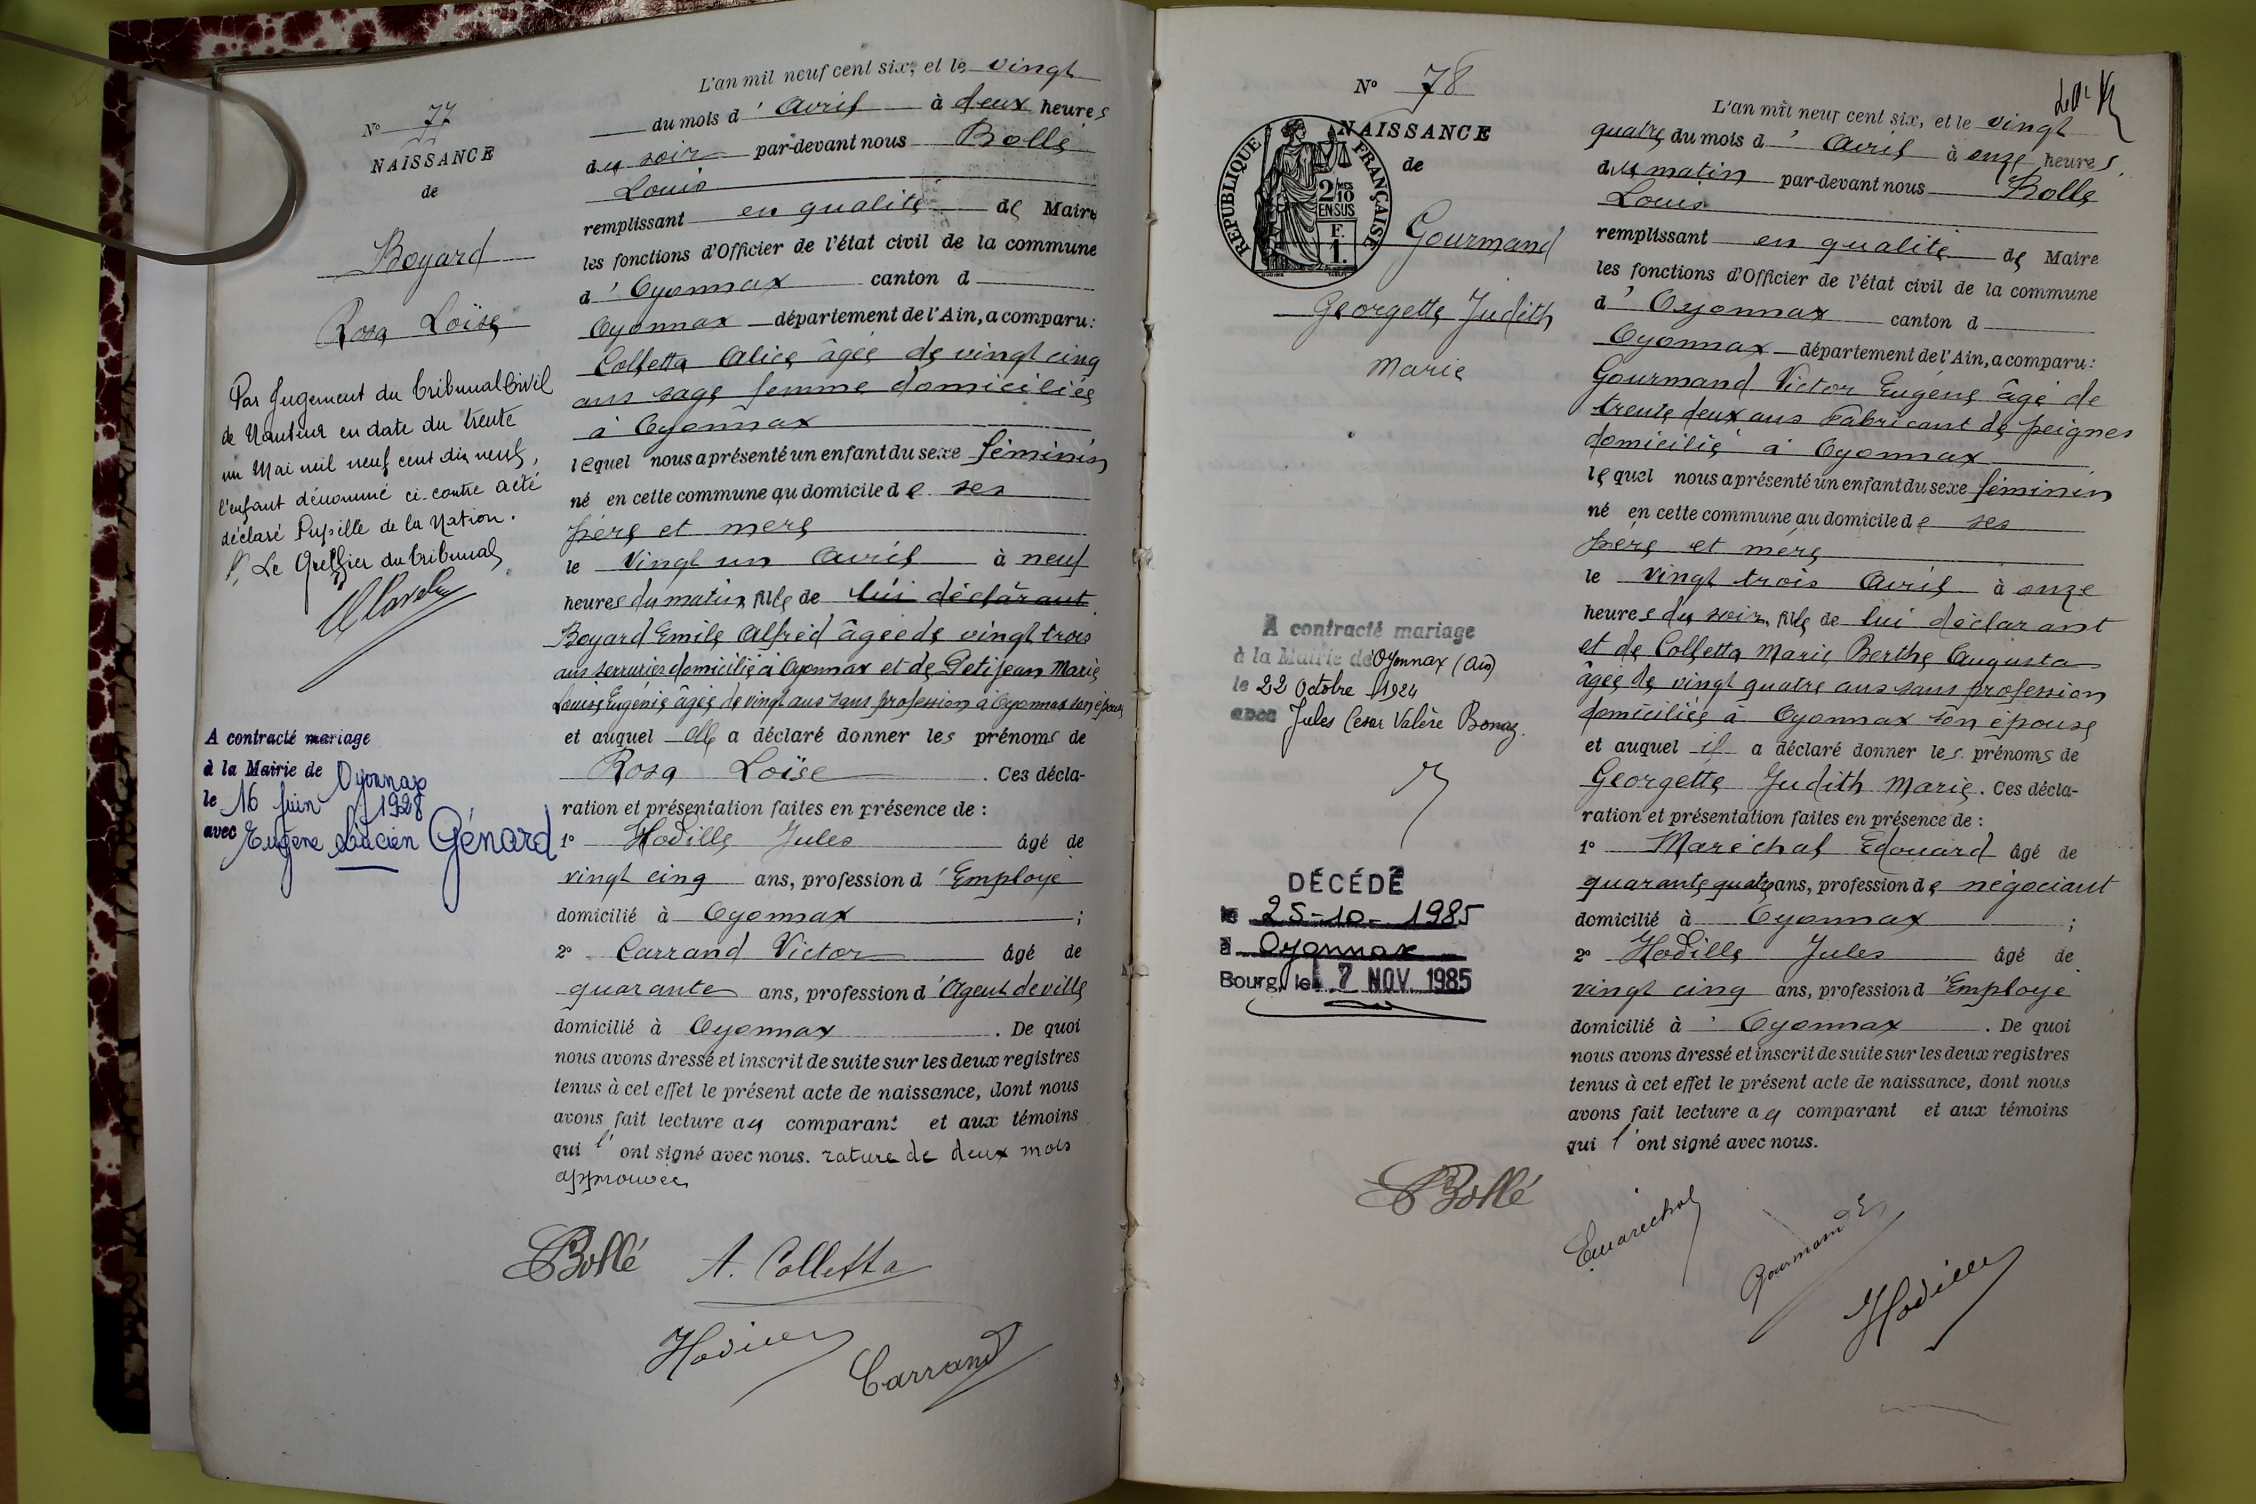 N° 77
NAISSANCE
de
Boyard
Rosa Loïse
Par Jugement du tribunal Civil
de Nantua en date du trente
un Mai mil neuf cent dix neuf,
l'enfant dénommé ci-contre a été
déclaré Pupille de la Nation.
Le Greffier du tribunal
A contracté mariage
à la Mairie de Oyonnax
le 16 juin 1928
avec Eugène Lucien Génard
L'an mil neuf cent six, et le vingt
du mois d' Avril à deux heures
du soir par-devant nous Bollé
Louis
remplissant en qualité de Maire
les fonctions d'Officier de l'état civil de la commune
d' Oyonnax canton d
Oyonnax département de l'Ain, a comparu:
Colletta Alice âgée de vingt cinq
ans sage femme domiciliée
à Oyonnax
lequel nous a présenté un enfant du sexe féminin
né en cette commune au domicile de ses
père et mère
le vingt un Avril à neuf
heures du matin, fille de lui déclarant
Boyard Emile Alfred âgée de vingt trois
ans serrurier domicilié à Oyonnax et de Petitjean Marie
Louise Eugénie âgée de vingt ans sans profession à Oyonnax son épouse
et auquel elle a déclaré donner les prénoms de
Rosa Loïse . Ces décla-
ration et présentation faites en présence de :
1° Hodille Jules âgé de
vingt cinq ans, profession d' Employé
domicilié à Oyonnax ;
2° Carrand Victor âgé de
quarante ans, profession d' Agent de ville
domicilié à Oyonnax . De quoi
nous avons dressé et inscrit de suite sur les deux registres
tenus à cet effet le présent acte de naissance, dont nous
avons fait lecture au comparant et aux témoins
qui l'ont signé avec nous. rature de deux mots
approuvée
Bollé A. Colletta
Hodille Carrand
N° 78
NAISSANCE
de
RÉPUBLIQUE FRANÇAISE
2 MES
10
EN SUS
F.
1.
Gourmand
Georgette Judith
Marie
A contracté mariage
à la Mairie de Oyonnax (Ain)
le 22 Octobre 1924
avec Jules César Valère Bonaz.
DÉCÉDÉ
le 25-10-1985
à Oyonnax
Bourg, le 7 NOV. 1985
L'an mil neuf cent six, et le vingt
quatre du mois d' Avril à onze heures
du matin par-devant nous Bollé
Louis
remplissant en qualité de Maire
les fonctions d'Officier de l'état civil de la commune
d' Oyonnax canton d
Oyonnax département de l'Ain, a comparu:
Gourmand Victor Eugène âgé de
trente deux ans Fabricant de peignes
domicilié à Oyonnax
lequel nous a présenté un enfant du sexe féminin
né en cette commune au domicile de ses
père et mère
le vingt trois Avril à onze
heures du soir, fille de lui déclarant
et de Colletta Marie Berthe Augusta
âgée de vingt quatre ans sans profession
domiciliée à Oyonnax son épouse
et auquel il a déclaré donner les prénoms de
Georgette Judith Marie. Ces décla-
ration et présentation faites en présence de :
1° Maréchal Edouard âgé de
quarante quatre ans, profession de négociant
domicilié à Oyonnax ;
2° Hodille Jules âgé de
vingt cinq ans, profession d' Employé
domicilié à Oyonnax . De quoi
nous avons dressé et inscrit de suite sur les deux registres
tenus à cet effet le présent acte de naissance, dont nous
avons fait lecture au comparant et aux témoins
qui l'ont signé avec nous.
Bollé
E Maréchal Gourmand E Hodille